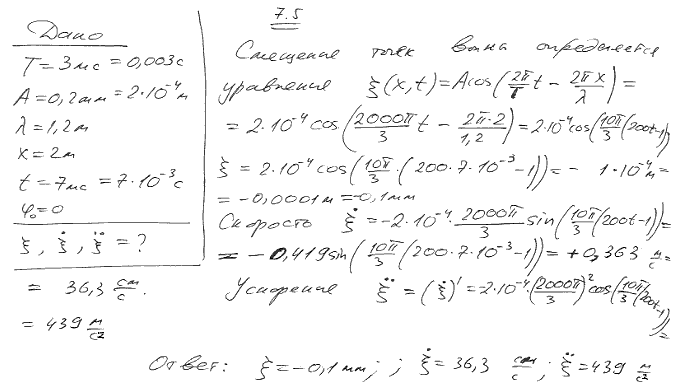 7.5
Дано
T = 3мс = 0,003с
A = 0,2мм = 2·10⁻⁴м
λ = 1,2м
x = 2м
t = 7мс = 7·10⁻³с
φ₀ = 0
ξ, ξ̇, ξ̈ = ?
Смещение точек волна определяется
уравнение ξ(x,t) = Acos(2π/T t − 2πx/λ) =
= 2·10⁻⁴cos(2000π/3 t − 2π·2/1,2) = 2·10⁻⁴cos(10π/3(200t−1))
ξ = 2·10⁻⁴cos(10π/3·(200·7·10⁻³−1)) = − 1·10⁻⁴м =
= −0,0001м = −0,1мм
Скорость ξ̇ = −2·10⁻⁴·2000π/3 sin(10π/3(200t−1)) =
= −0,419sin(10π/3(200·7·10⁻³−1)) = +0,363 м/с =
= 36,3 см/с.
Ускорение ξ̈ = (ξ̇)' = −2·10⁻⁴·(2000π/3)²cos(10π/3(200t−1)) =
= 439 м/с²
Ответ: ξ = −0,1мм; ; ξ̇ = 36,3 см/с; ξ̈ = 439 м/с²